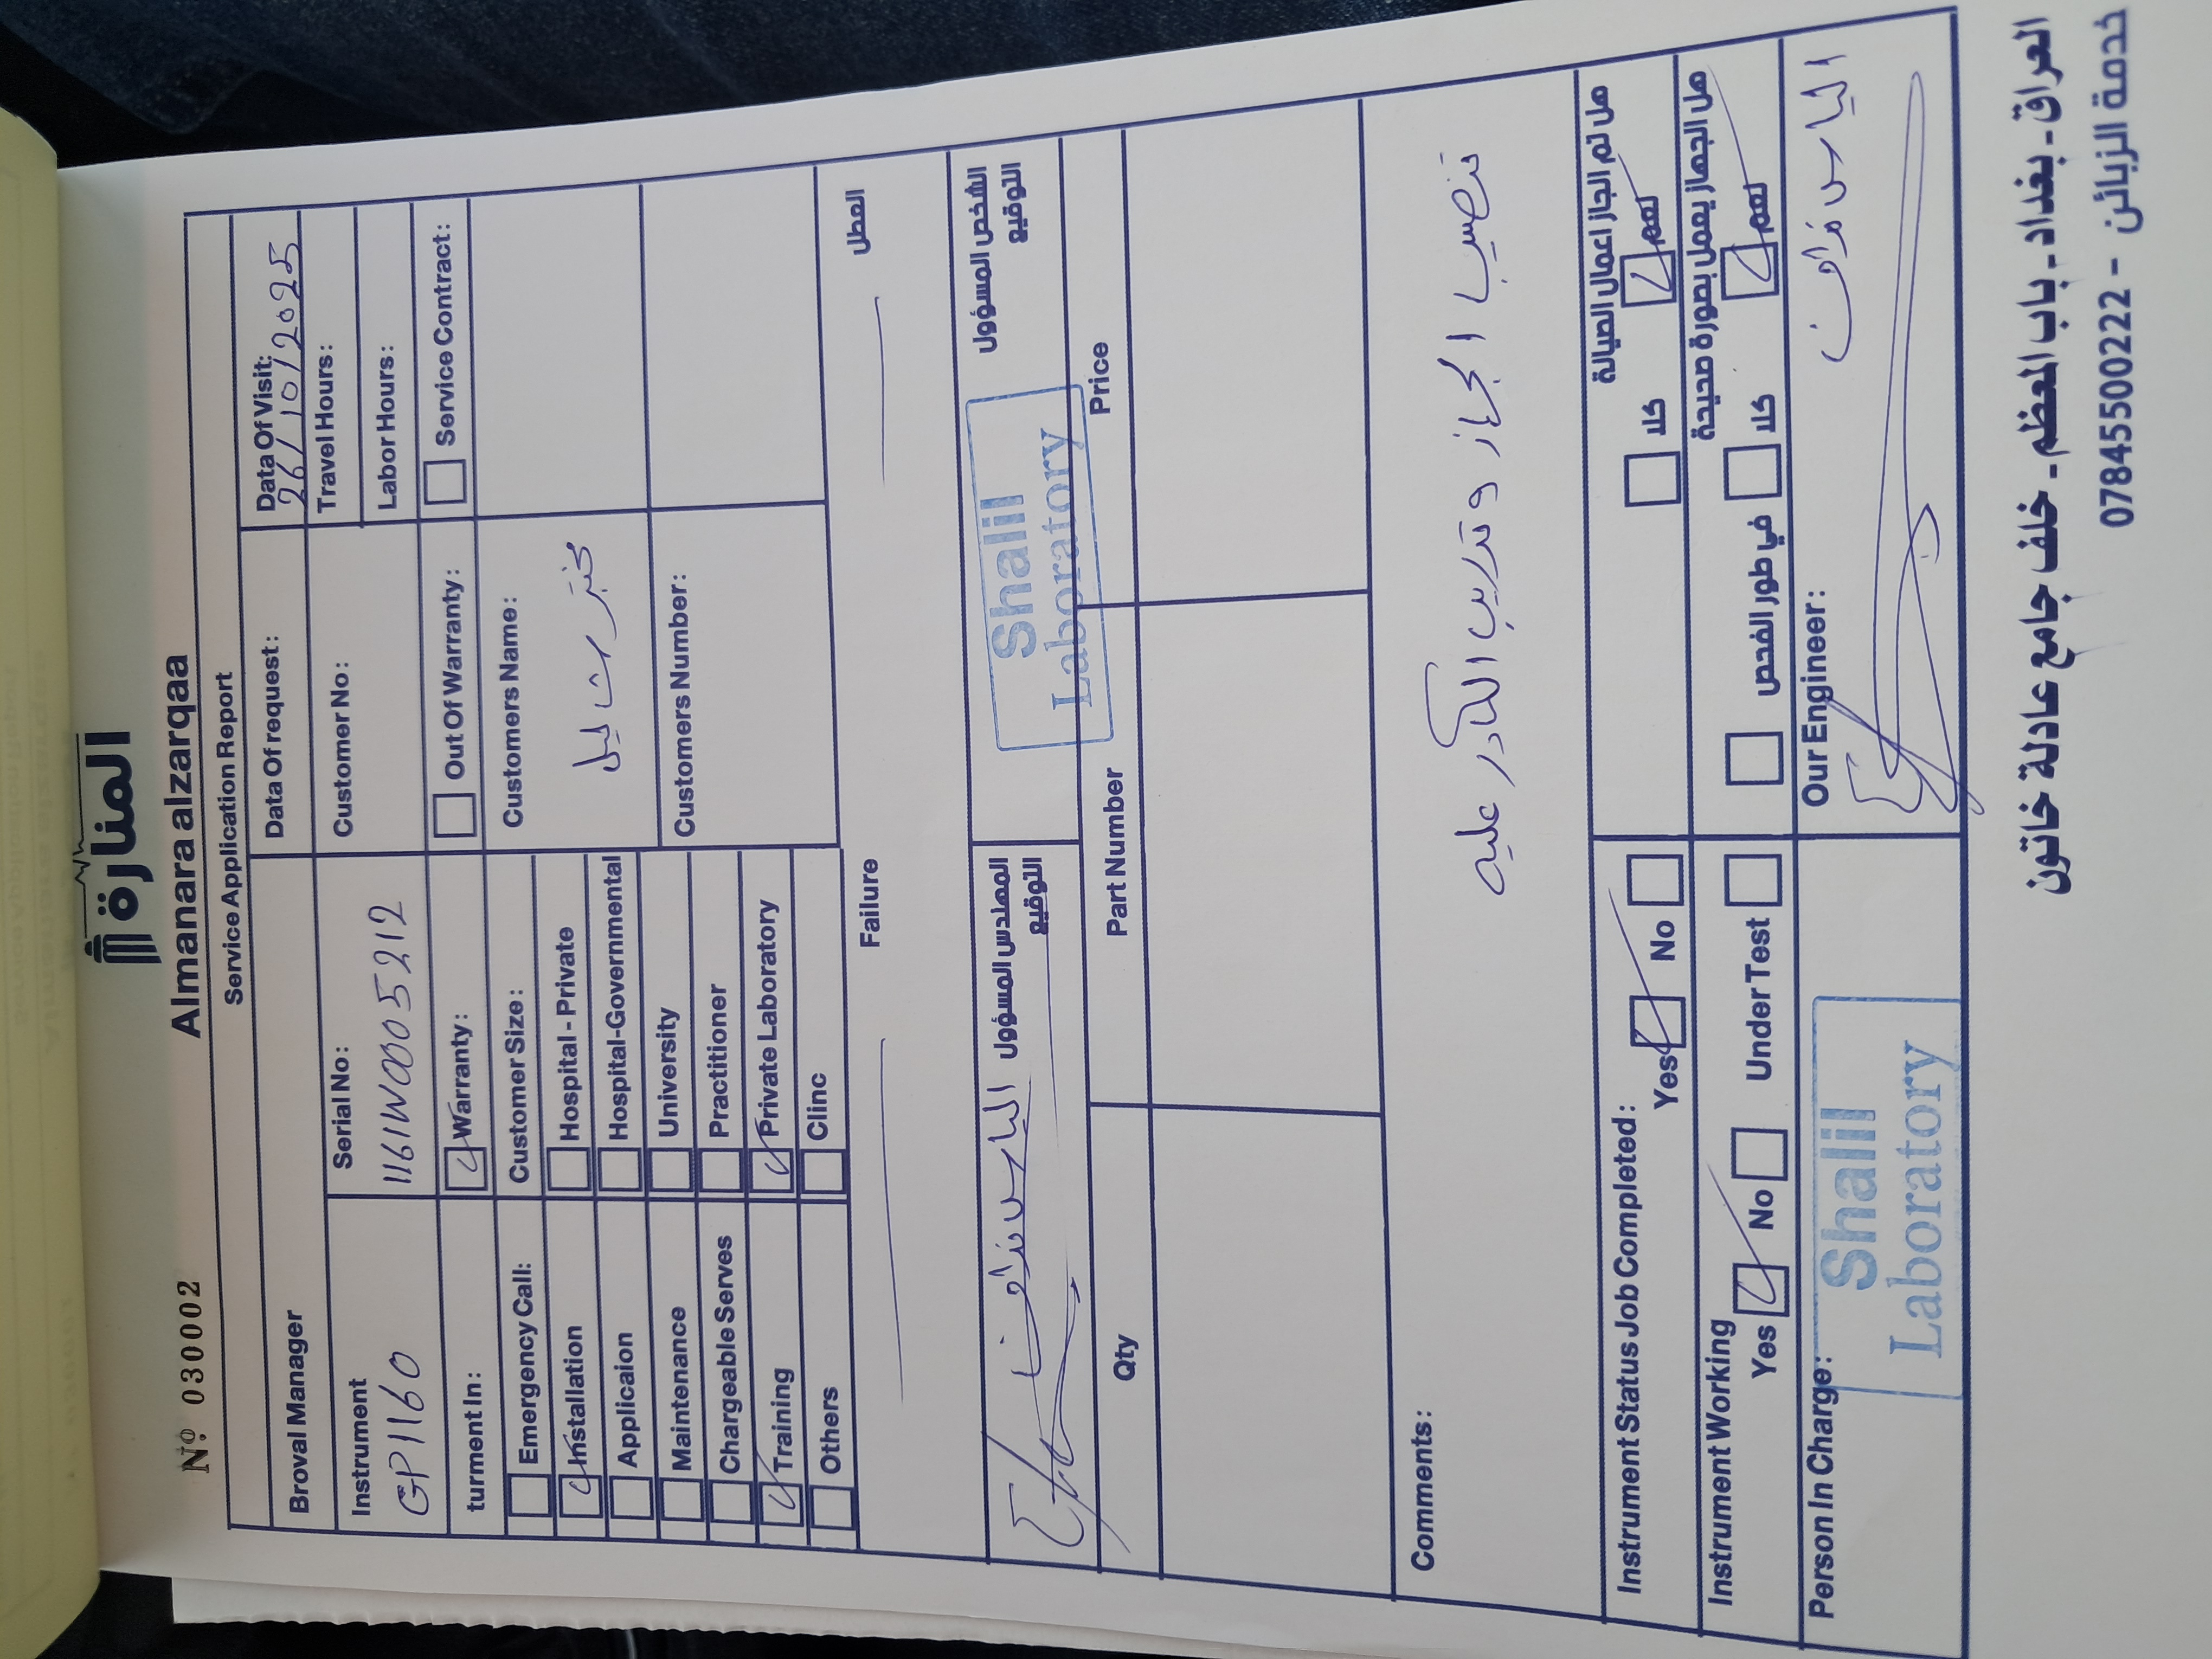 المنارة
Almanara alzarqaa
Nº 030002
Service Application Report
Broval Manager
Data Of request:
Data Of Visit:
26/10/2025
Instrument
GP1160
Serial No:
1161W0005212
Customer No:
Travel Hours:
Labor Hours:
turment In:
Warranty:
Out Of Warranty:
Service Contract:
Emergency Call:
Installation
Applicaion
Maintenance
Chargeable Serves
Training
Others
Customer Size:
Hospital - Private
Hospital-Governmental
University
Practitioner
Private Laboratory
Clinc
Customers Name:
مختبر شاليل
Customers Number:
Failure
العطل
المهندس المسؤول
التوقيع
الشخص المسؤول
التوقيع
Shalil
Laboratory
Qty
Part Number
Price
Comments:
تنصيب الجهاز وتدريب الكادر عليه
Instrument Status Job Completed:
Yes
No
هل تم انجاز اعمال الصيانة
نعم
كلا
Instrument Working
Yes
No
Under Test
هل الجهاز يعمل بصورة صحيحة
نعم
كلا
في طور الفحص
Person In Charge:
Shalil
Laboratory
Our Engineer:
العراق - بغداد - باب المعظم - خلف جامع عادلة خاتون
خدمة الزبائن - 07845500222